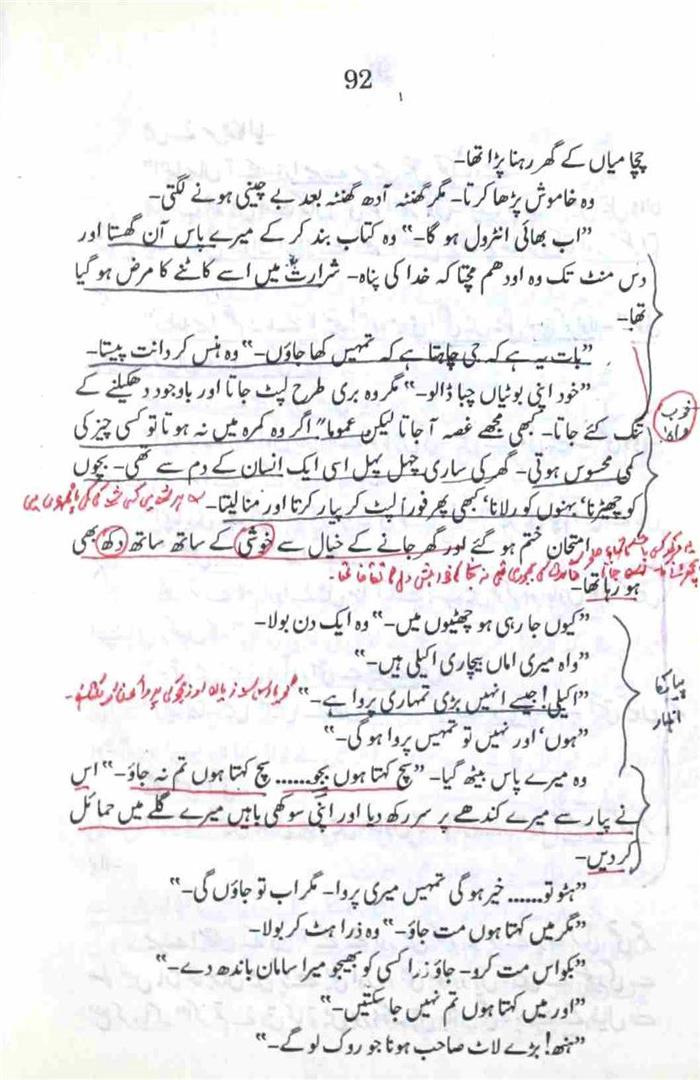 92
چچا میاں کے گھر رہنا پڑا تھا۔
وہ خاموش پڑھا کرتا۔ مگر گھنٹہ آدھ گھنٹہ بعد بے چینی ہونے لگتی۔
”اب بھائی انٹرول ہو گا۔“ وہ کتاب بند کر کے میرے پاس آن گھستا اور
دس منٹ تک وہ اودھم مچتا کہ خدا کی پناہ۔ شرارت میں اسے کاٹنے کا مرض ہو گیا
تھا۔
”بات یہ ہے کہ جی چاہتا ہے کہ تمہیں کھا جاؤں۔“ وہ ہنس کر دانت پیستا۔
”خود اپنی بوٹیاں چبا ڈالو۔“ مگر وہ بری طرح لپٹ جاتا اور باوجود دھکیلنے کے
تنگ کئے جاتا۔ کبھی مجھے غصہ آ جاتا لیکن عموما" اگر وہ کمرہ میں نہ ہوتا تو کسی چیز کی
خوب
کمی محسوس ہوتی۔ گھر کی ساری چہل پہل اسی ایک انسان کے دم سے تھی۔ بچوں
کو چھیڑنا‘ بہنوں کو رلانا‘ کبھی پھر فوراً لپٹ کر پیار کرتا اور منا لیتا۔
امتحان ختم ہو گئے اور گھر جانے کے خیال سے خوشی کے ساتھ ساتھ دکھ بھی
ہو رہا تھا۔
”کیوں جا رہی ہو چھٹیوں میں۔“ وہ ایک دن بولا۔
”واہ میری اماں بیچاری اکیلی ہیں۔“
”اکیلی! جیسے انہیں بڑی تمہاری پروا ہے۔“
پیار کا
اظہار
”ہوں‘ اور نہیں تو تمہیں پروا ہو گی۔“
وہ میرے پاس بیٹھ گیا۔ ”سچ کہتا ہوں بجو...... سچ کہتا ہوں تم نہ جاؤ۔“ اس
نے پیار سے میرے کندھے پر سر رکھ دیا اور اپنی سوکھی باہیں میرے گلے میں حمائل
کر دیں۔
”ہٹو تو...... خیر ہو گی تمہیں میری پروا۔ مگر اب تو جاؤں گی۔“
”مگر میں کہتا ہوں مت جاؤ۔“ وہ ذرا ہٹ کر بولا۔
”بکواس مت کرو۔ جاؤ زرا کسی کو بھیجو میرا سامان باندھ دے۔“
”اور میں کہتا ہوں تم نہیں جا سکتیں۔“
”ہنھ! بڑے لاٹ صاحب ہونا جو روک لو گے۔“